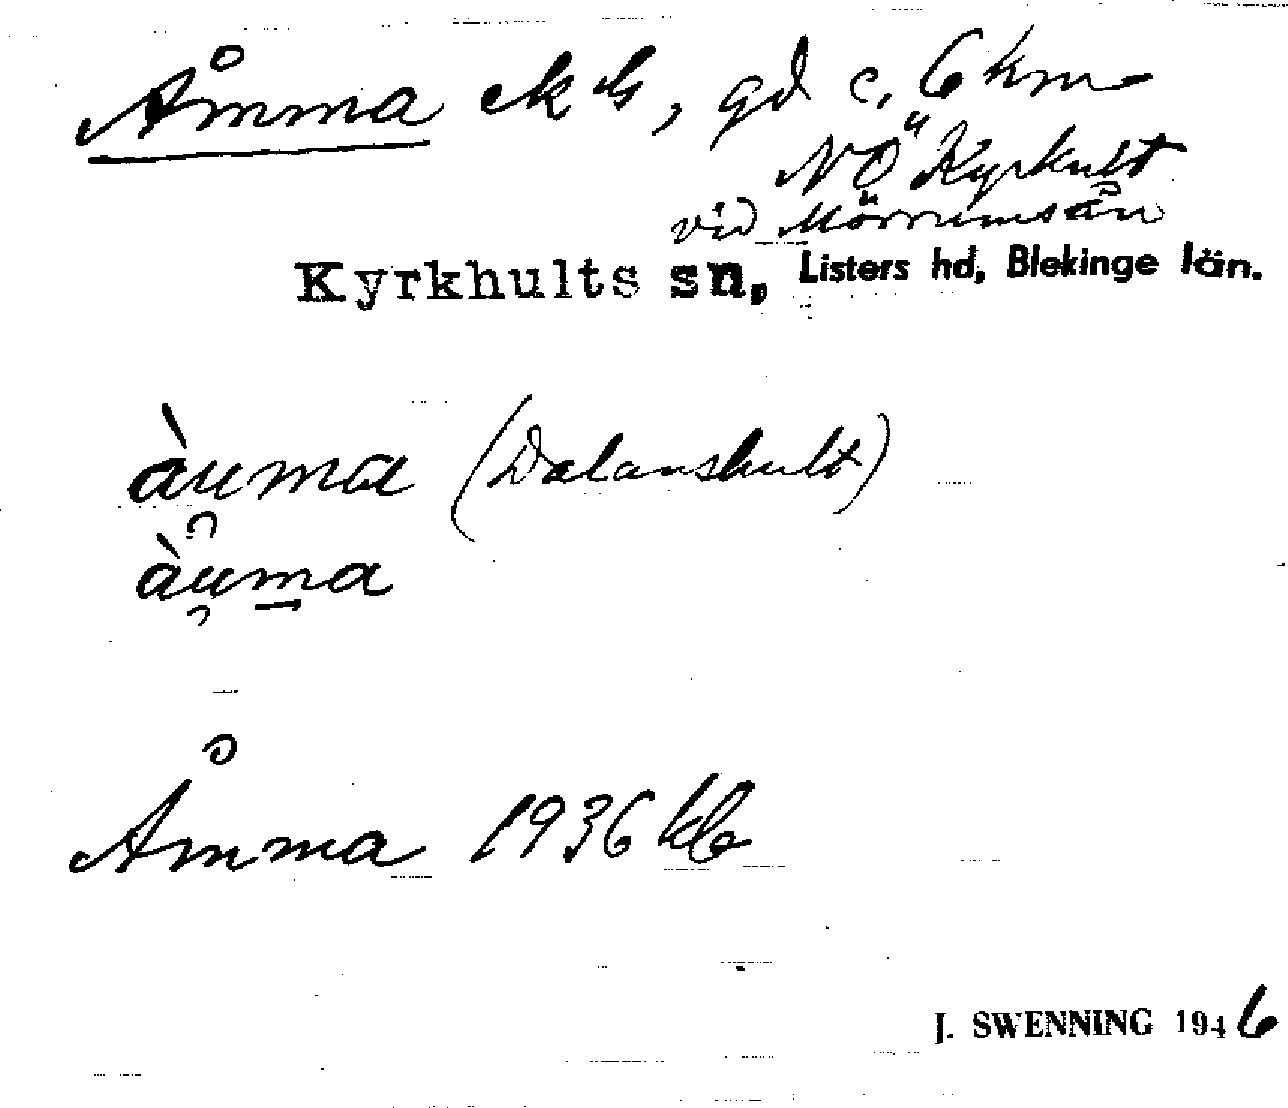 Åmma ek ¼, gd c. 6 km
NÖ Kyrkult
vid Mörrumsån
Kyrkhults sn, Listers hd, Blekinge län.
àu̯ma (Dalanshult)
àu̯m̱a
Åmma 1936 kb
J. SWENNING 1946